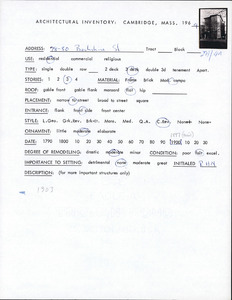 ARCHITECTURAL INVENTORY: CAMBRIDGE, MASS, 196
ADDRESS: 78-80 Berkshire St Tract Block
USE: residential commercial religious
TYPE: single double row 2 deck 3 deck double 3d tenement Apart.
STORIES: 1 2 3 4 5 MATERIAL: Frame Brick Mod Compo
ROOF: gable front gable flank mansard flat hip
PLACEMENT: narrow to street broad to street square
ENTRANCE: flank front side front center
STYLE: L.Geo. Grk.Rev. Brkntr. Mans. Med. Q.A. C.Rev. None
ORNAMENT: little moderate elaborate
DATE: 1790 1800 10 20 30 40 50 60 70 80 90 1900 10 20 30
DEGREE OF REMODELING: drastic moderate minor CONDITION: poor fair excel.
IMPORTANCE TO SETTING: detrimental none moderate great INITIALED
DESCRIPTION: (for more important structures only)
1903